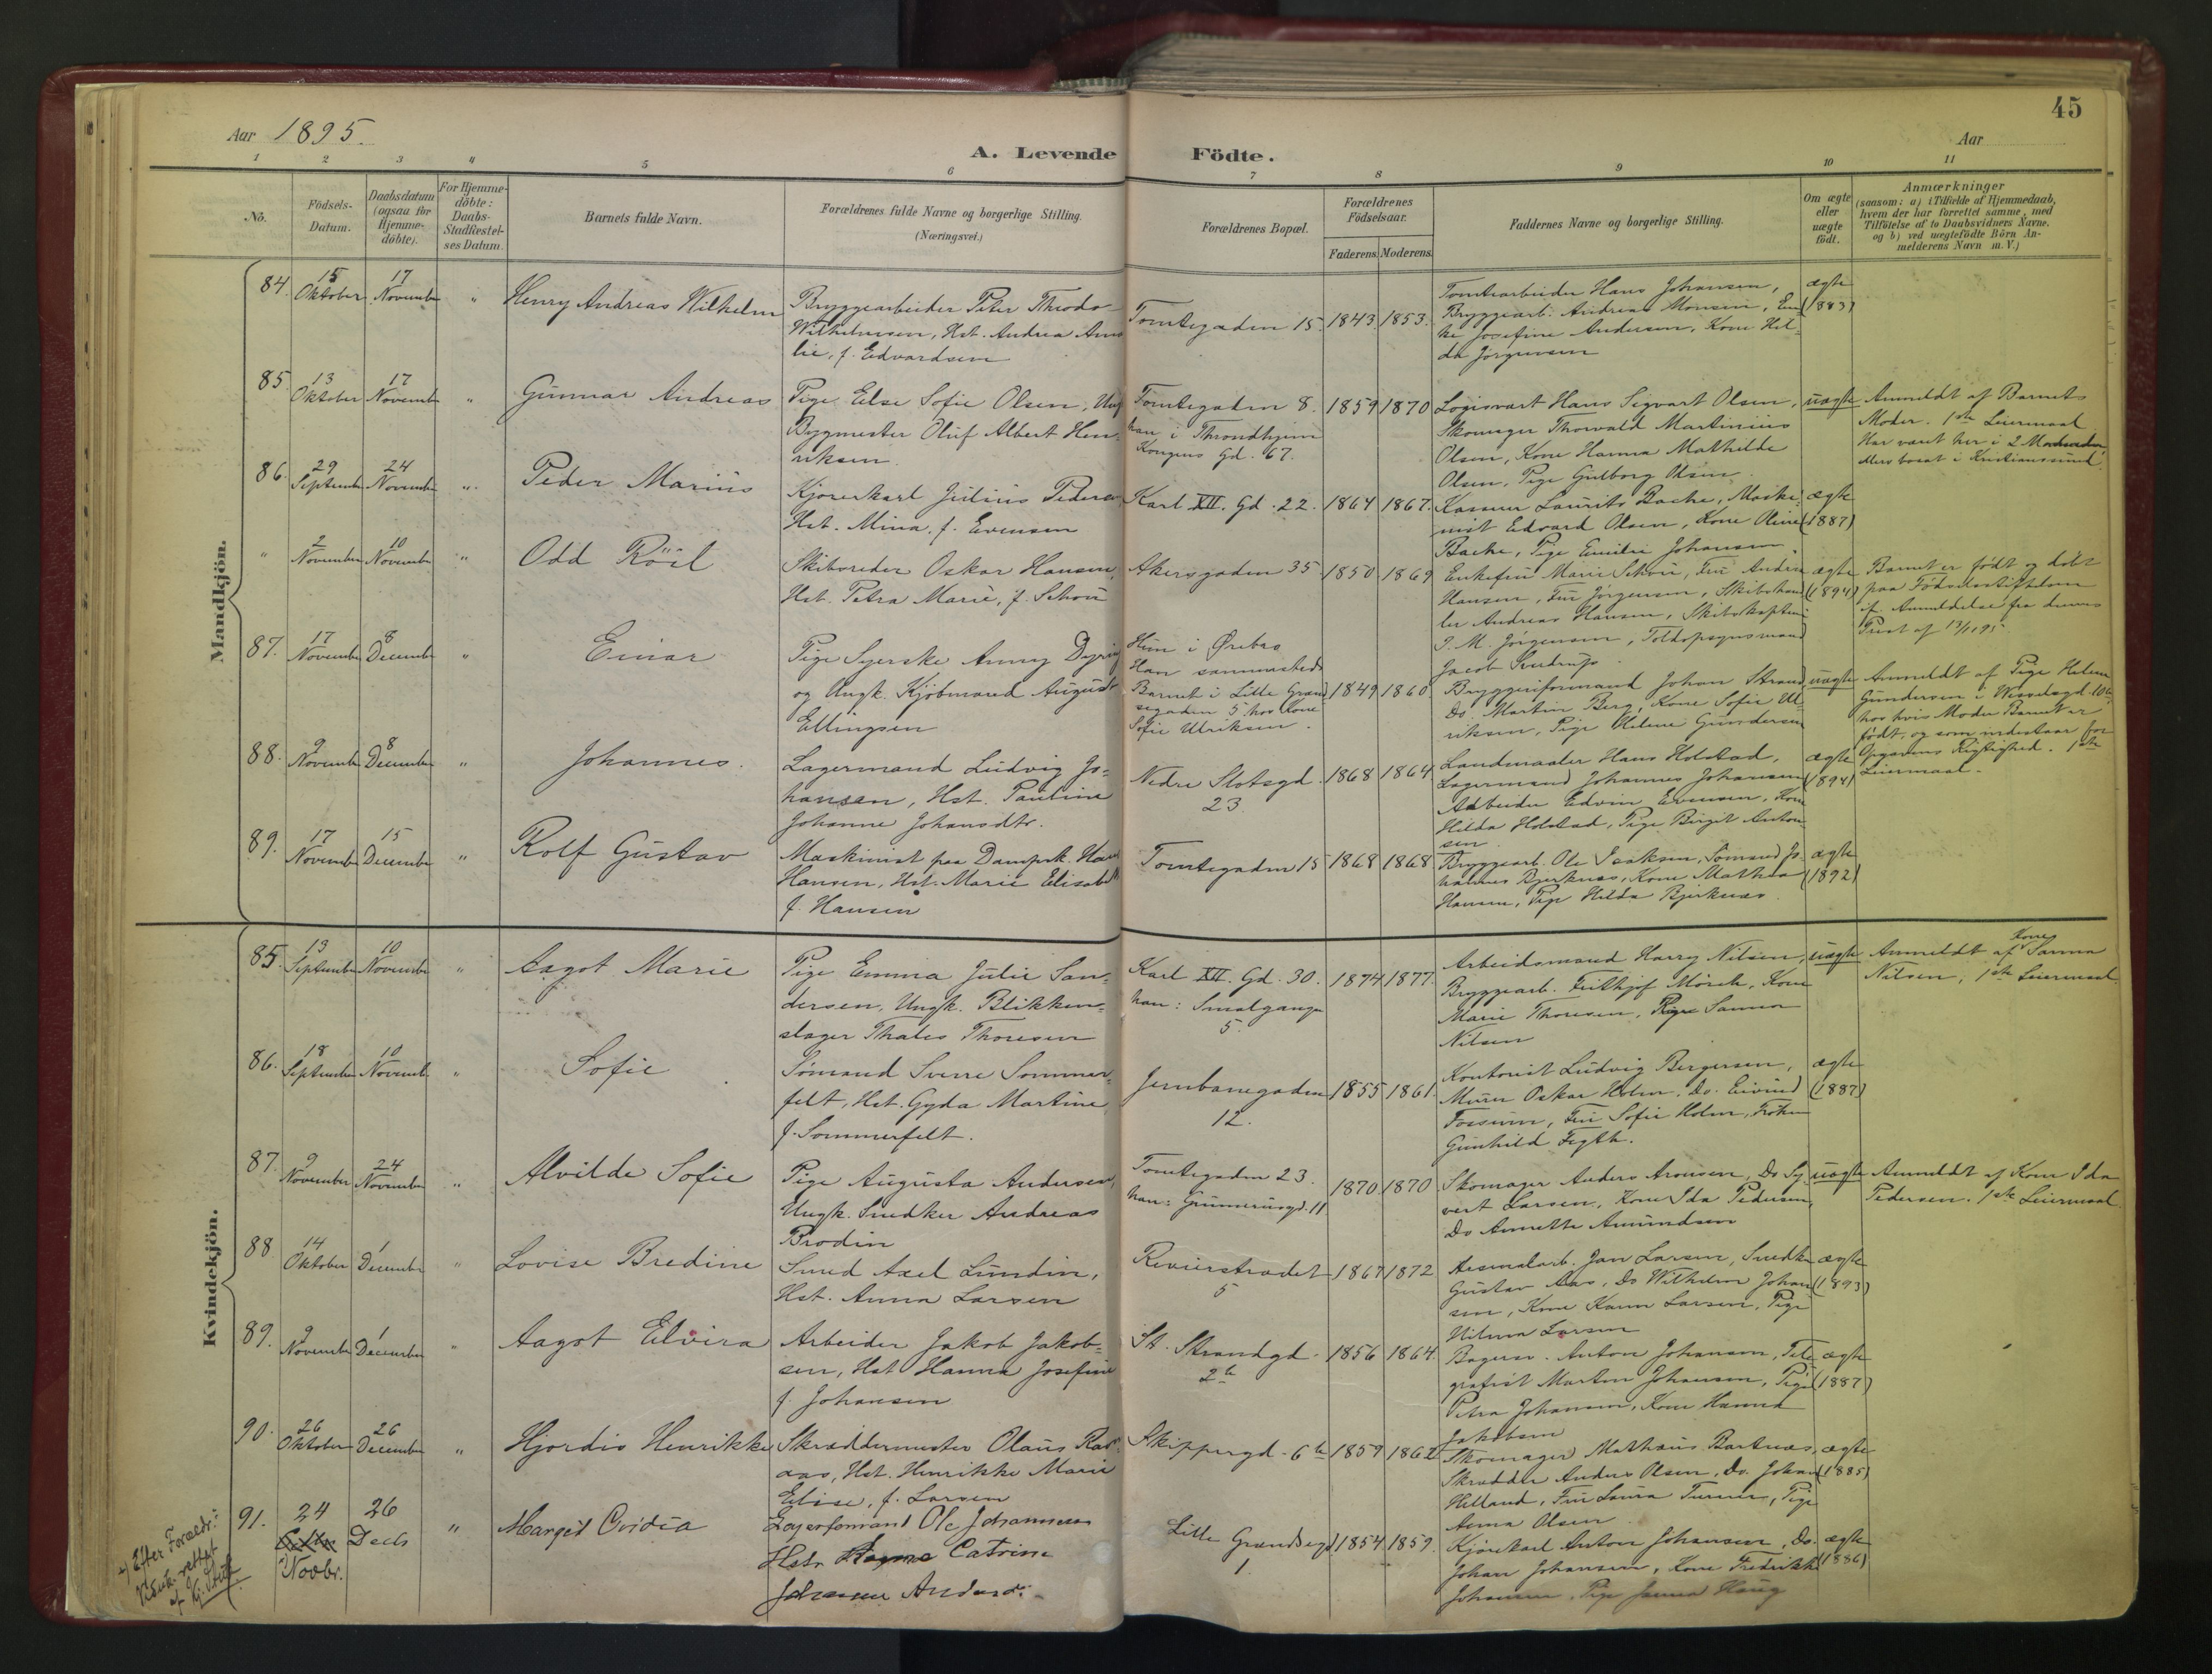 45
Aar 1895.
Aar
A. Levende Födte.
1 2 3 4 5 6 7 8 9 10 11
No.
Födsels-Datum.
Daabsdatum (ogsaa for Hjemme-döbte).
For Hjemme-döbte: Daabs-Stadfæstel-ses Datum.
Barnets fulde Navn.
Forældrenes fulde Navne og borgerlige Stilling. (Næringsvei.)
Forældrenes Bopæl.
Forældrenes Födselsaar.
Faderens. Moderens.
Faddernes Navne og borgerlige Stilling.
Om ægte eller uægte födt.
Anmærkninger
(saasom: a) i Tilfælde af Hjemmedaab,
hvem der har forrettet samme, med
Tilföielse af to Daabsvidners Navne.
og b) ved uægtefödte Börn An-
melderens Navn m. V.)
Mandkjön.
84. 15 Oktober 17 November " Henry Andreas Wilhelm
Bryggearbeider Peter Theodo
Wilhelmsen, Hst. Andrea Ama
lie, f. Edvardsen
Tomtegaden 15. 1843 1853.
Tomtearbeider Hans Johansen,
Bryggearb. Andreas Monsen, En
ke Josefine Andersen, Kone Hil-
da Jörgensen
ægte (1883)
85. 13 Oktober 17 November " Gunnar Andreas
Pige Else Sofie Olsen, Ung
Bygmester Oluf Albert Hen-
riksen.
Tomtegaden 8.
han i Throndhjem
Kongens Gd. 67.
1859 1870
Logisvært Hans Sigvart Olsen,
Skomager Thorvald Martinius
Olsen, Kone Hanna Mathilde
Olsen, Pige Gulborg Olsen.
uægte
Anmeldt af Barnets
Moder. 1ste Leiermaal
Har været her i 2 Maaneder
ellers bosat i Kristianssund.
86. 29 September 24 November " Peder Marius
Kjörerkarl Julius Pedersen
Hst. Mina, f. Evensen
Karl XII. Gd. 22. 1864 1867.
Kasserer Laurits Bache, Maski-
nist Edvard Olsen, Kone Oline
Bache, Pige Emilie Johansen.
ægte (1887)
" 2 November 10 November " Odd Röil
Skibsreder Oskar Hansen,
Hst. Petra Marie, f. Schou
Akersgaden 35 1850 1869
Enkefru Marie Schou, Fru Andrea
Hansen, Fru Jörgensen, Skibshand
ler Andreas Hansen, Skibskaptein
J. M. Jörgensen, Toldopsynsmand
Jacob Sverdrup.
ægte (1894)
Barnet er födt og döbt
paa Födselsstiftelsen
if. Anmeldelse fra dennes
Prest af 13/11 95.
87. 17 November 8 December " Einar
Pige Syerske Anny Dyring
og Ungk. Kjöbmand August
Ellingsen
Hun i Ørebro
Han sammesteds
Barnet i Lille Grænd
segaden 5 hos Kone
Sofie Ulriksen.
1849 1860
Bryggeriformand Johan Strand
Do. Martin Berg, Kone Sofie Ul-
riksen, Pige Helene Gundersen
uægte
Anmeldt af Pige Helene
Gundersen i Wesselsgd. 10
hos hvis Moder Barnet er
födt, og som indestaar for
Opgavens Rigtighed. 1ste
Leiermaal.
88. 9 November 8 December " Johannes.
Lagermand Ludvig Jo-
hansen, Hst. Pauline
Johanne Johansdtr.
Nedre Slotsgd. 23 1868 1864
Landmaaler Hans Holstad,
Lagermand Johannes Johansen
Arbeider Edvin Evensen, Kone
Hilda Holstad, Pige Birgit Anton-
sen
ægte (1894)
89. 17 November 15 December " Rolf Gustav
Maskinist paa Dampsk. Hans
Hansen, Hst. Marie Elisabeth
f. Hansen
Tomtegaden 15 1868 1868
Bryggearb. Ole Isaksen, Sömand Jo-
hannes Bjerknæs, Kone Mathea
Hansen, Pige Hilda Bjerknæs
ægte (1892)
Kvindekjön.
85. 13 September 10 November " Aagot Marie
Pige Emma Julie San-
dersen, Ungk. Blikken-
slager Thales Thoresen
Karl XII. Gd. 30.
han: Smalgangen
5.
1874 1877.
Arbeidsmand Harry Nilsen,
Bryggearb. Frithjof Mörch, Kone
Marie Thoresen, Pige Sanna
Nilsen
uægte
Anmeldt af Kone Sanna
Nilsen, 1ste Leiermaal.
86. 18 September 10 November " Sofie
Sömand Sverre Sommer-
felt, Hst. Gyda Martine
f. Sommerfelt.
Jernbanegaden 12. 1855 1861.
Kontorist Ludvig Bergersen,
Murer Oskar Holm, Do. Eivind
Fossum, Fru Sofie Holm, Fröken
Gunhild Fegth.
ægte (1887)
87. 9 November 24 November " Alvilde Sofie
Pige Augusta Andersen,
Ungk. Snedker Andreas
Brodin
Tomtegaden 23.
han: Grünerusgd. 11
1870 1870
Skomager Anders Aronsen, Do Sy-
vert Larsen, Kone Ida Pedersen,
Do Annette Amundsen
uægte
Anmeldt af Kone Ida
Pedersen. 1ste Leiermaal.
88. 14 Oktober 1 December " Lovise Bredine
Smed Axel Lundin,
Hst. Anna Larsen
Revierstrædet 5 1867 1872
Arsenalarb. Jan Larsen, Snedker
Gustav Aas, Do Wilhelm Johan
sen, Kone Karen Larsen, Pige
Hilma Larsen
ægte (1893)
89. 9 November 1 December " Aagot Elvira
Arbeider Jakob Jakob-
sen, Hst Hanna Josefine
f. Johansen
St. Strandgd. 2b 1856 1864
Bagersv. Anton Johansen, Tele
grafist Morten Johansen, Pige
Petra Johansen, Kone Hanna
Jakobsen
ægte (1887)
90. 26 Oktober 26 December " Hjordis Henrikke
Skræddermester Olaus Rav-
aas, Hst. Henrikke Marie
Elise, f. Larsen
Skippergd. 6b 1859 1862
Skomager Mathæus Bartnæs,
Skrædder Anders Olsen, Do. Johan
Helland, Fru Laura Turner, Pige
Anna Olsen
ægte (1885)
91. 24 Novbr. 26 Decb " Margit Ovidia
Lagerformand Ole Johannesen
Hstr Catrine
Johanne Andersd.
Lille Grændsegd 1 1854 1859.
Kjörekarl Anton Johansen, Do.
Johan Johansen, Kone Fredrikke
Johansen, Pige Janna Haug
ægte (1886)
Efter Foræld:
rettet
af